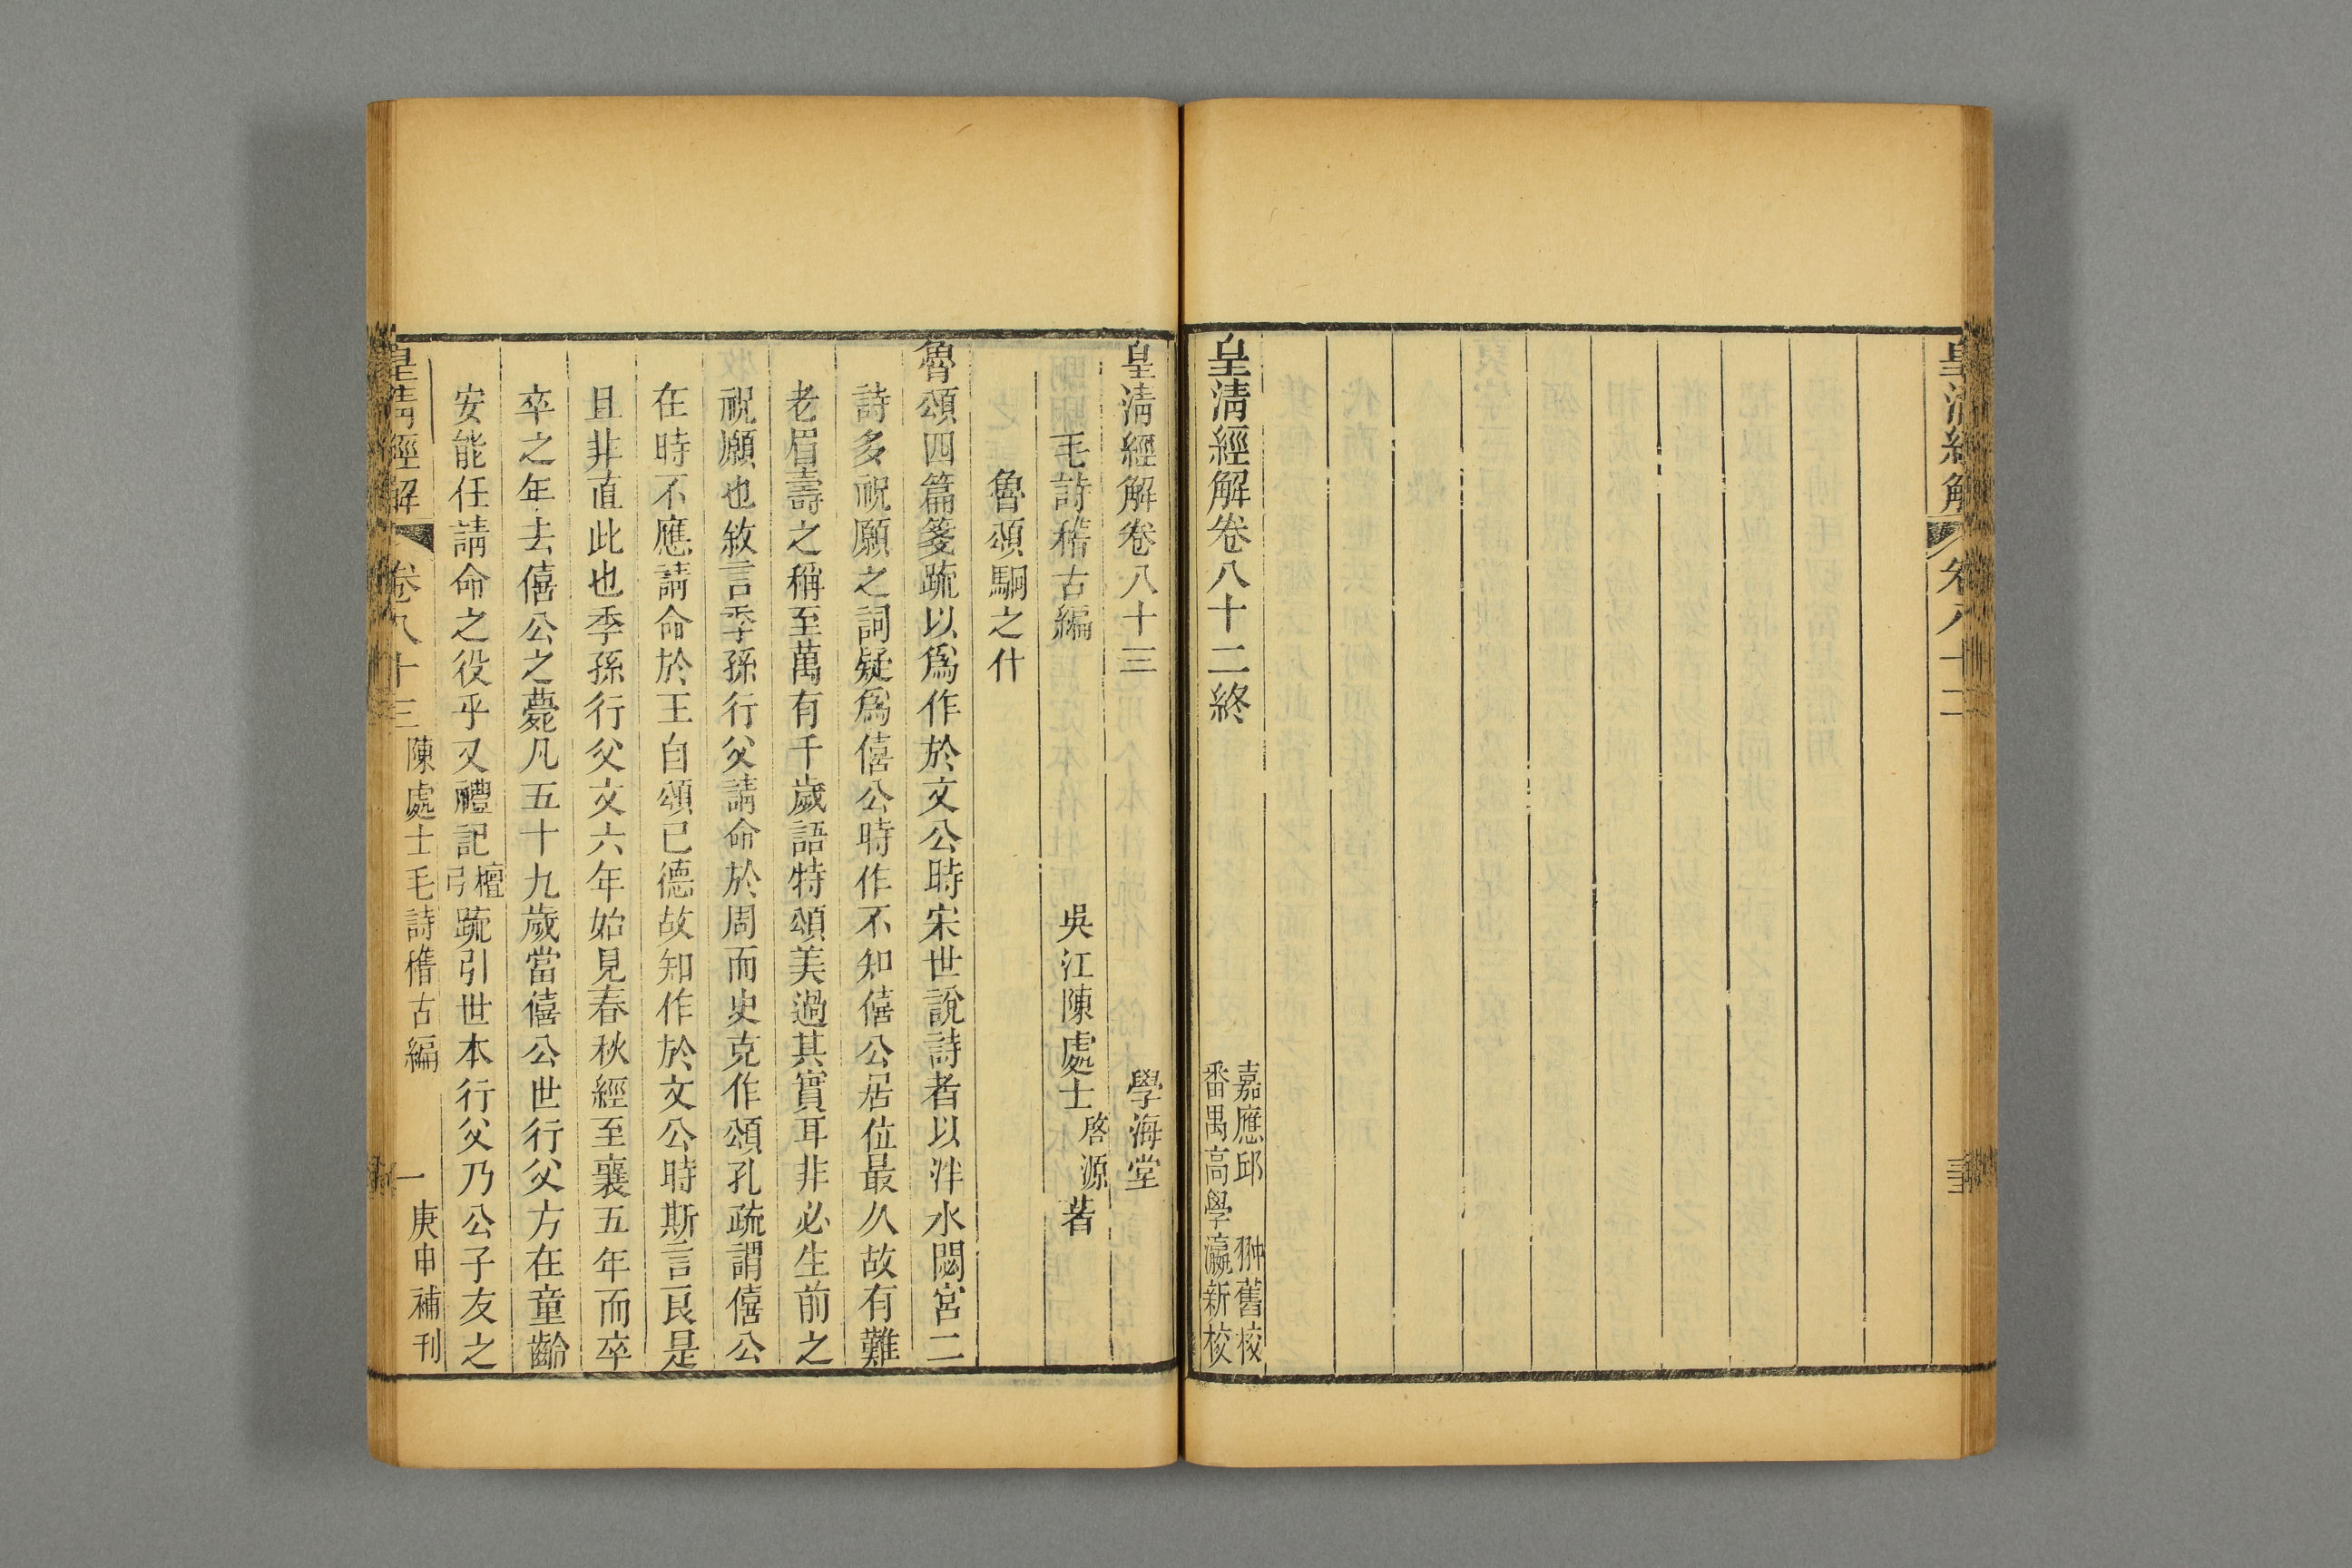 皇清經解
卷八十二
皇清經解卷八十二終
嘉應邱翀舊校
番禺高學瀛新校
皇清經解卷八十三
學海堂
毛詩稽古編
吳江陳處士啓源著
魯頌駉之什
魯頌四篇箋䟽以爲作於文公時宋世說詩者以泮水閟宮二
詩多祝願之詞疑爲僖公時作不知僖公居位最久故有難
老眉壽之稱至萬有千歲語特頌美過其實耳非必生前之
祝願也敘言季孫行父請命於周而史克作頌孔疏謂僖公
在時不應請命於王自頌已德故知作於文公時斯言良是
且非直此也季孫行父文六年始見春秋經至襄五年而卒
卒之年去僖公之薨凡五十九歲當僖公世行父方在童齡
安能任請命之役乎又禮記檀引䟽引世本行父乃公子友之
皇清經解
卷八十三
陳處士毛詩稽古編
一
庚申補刊